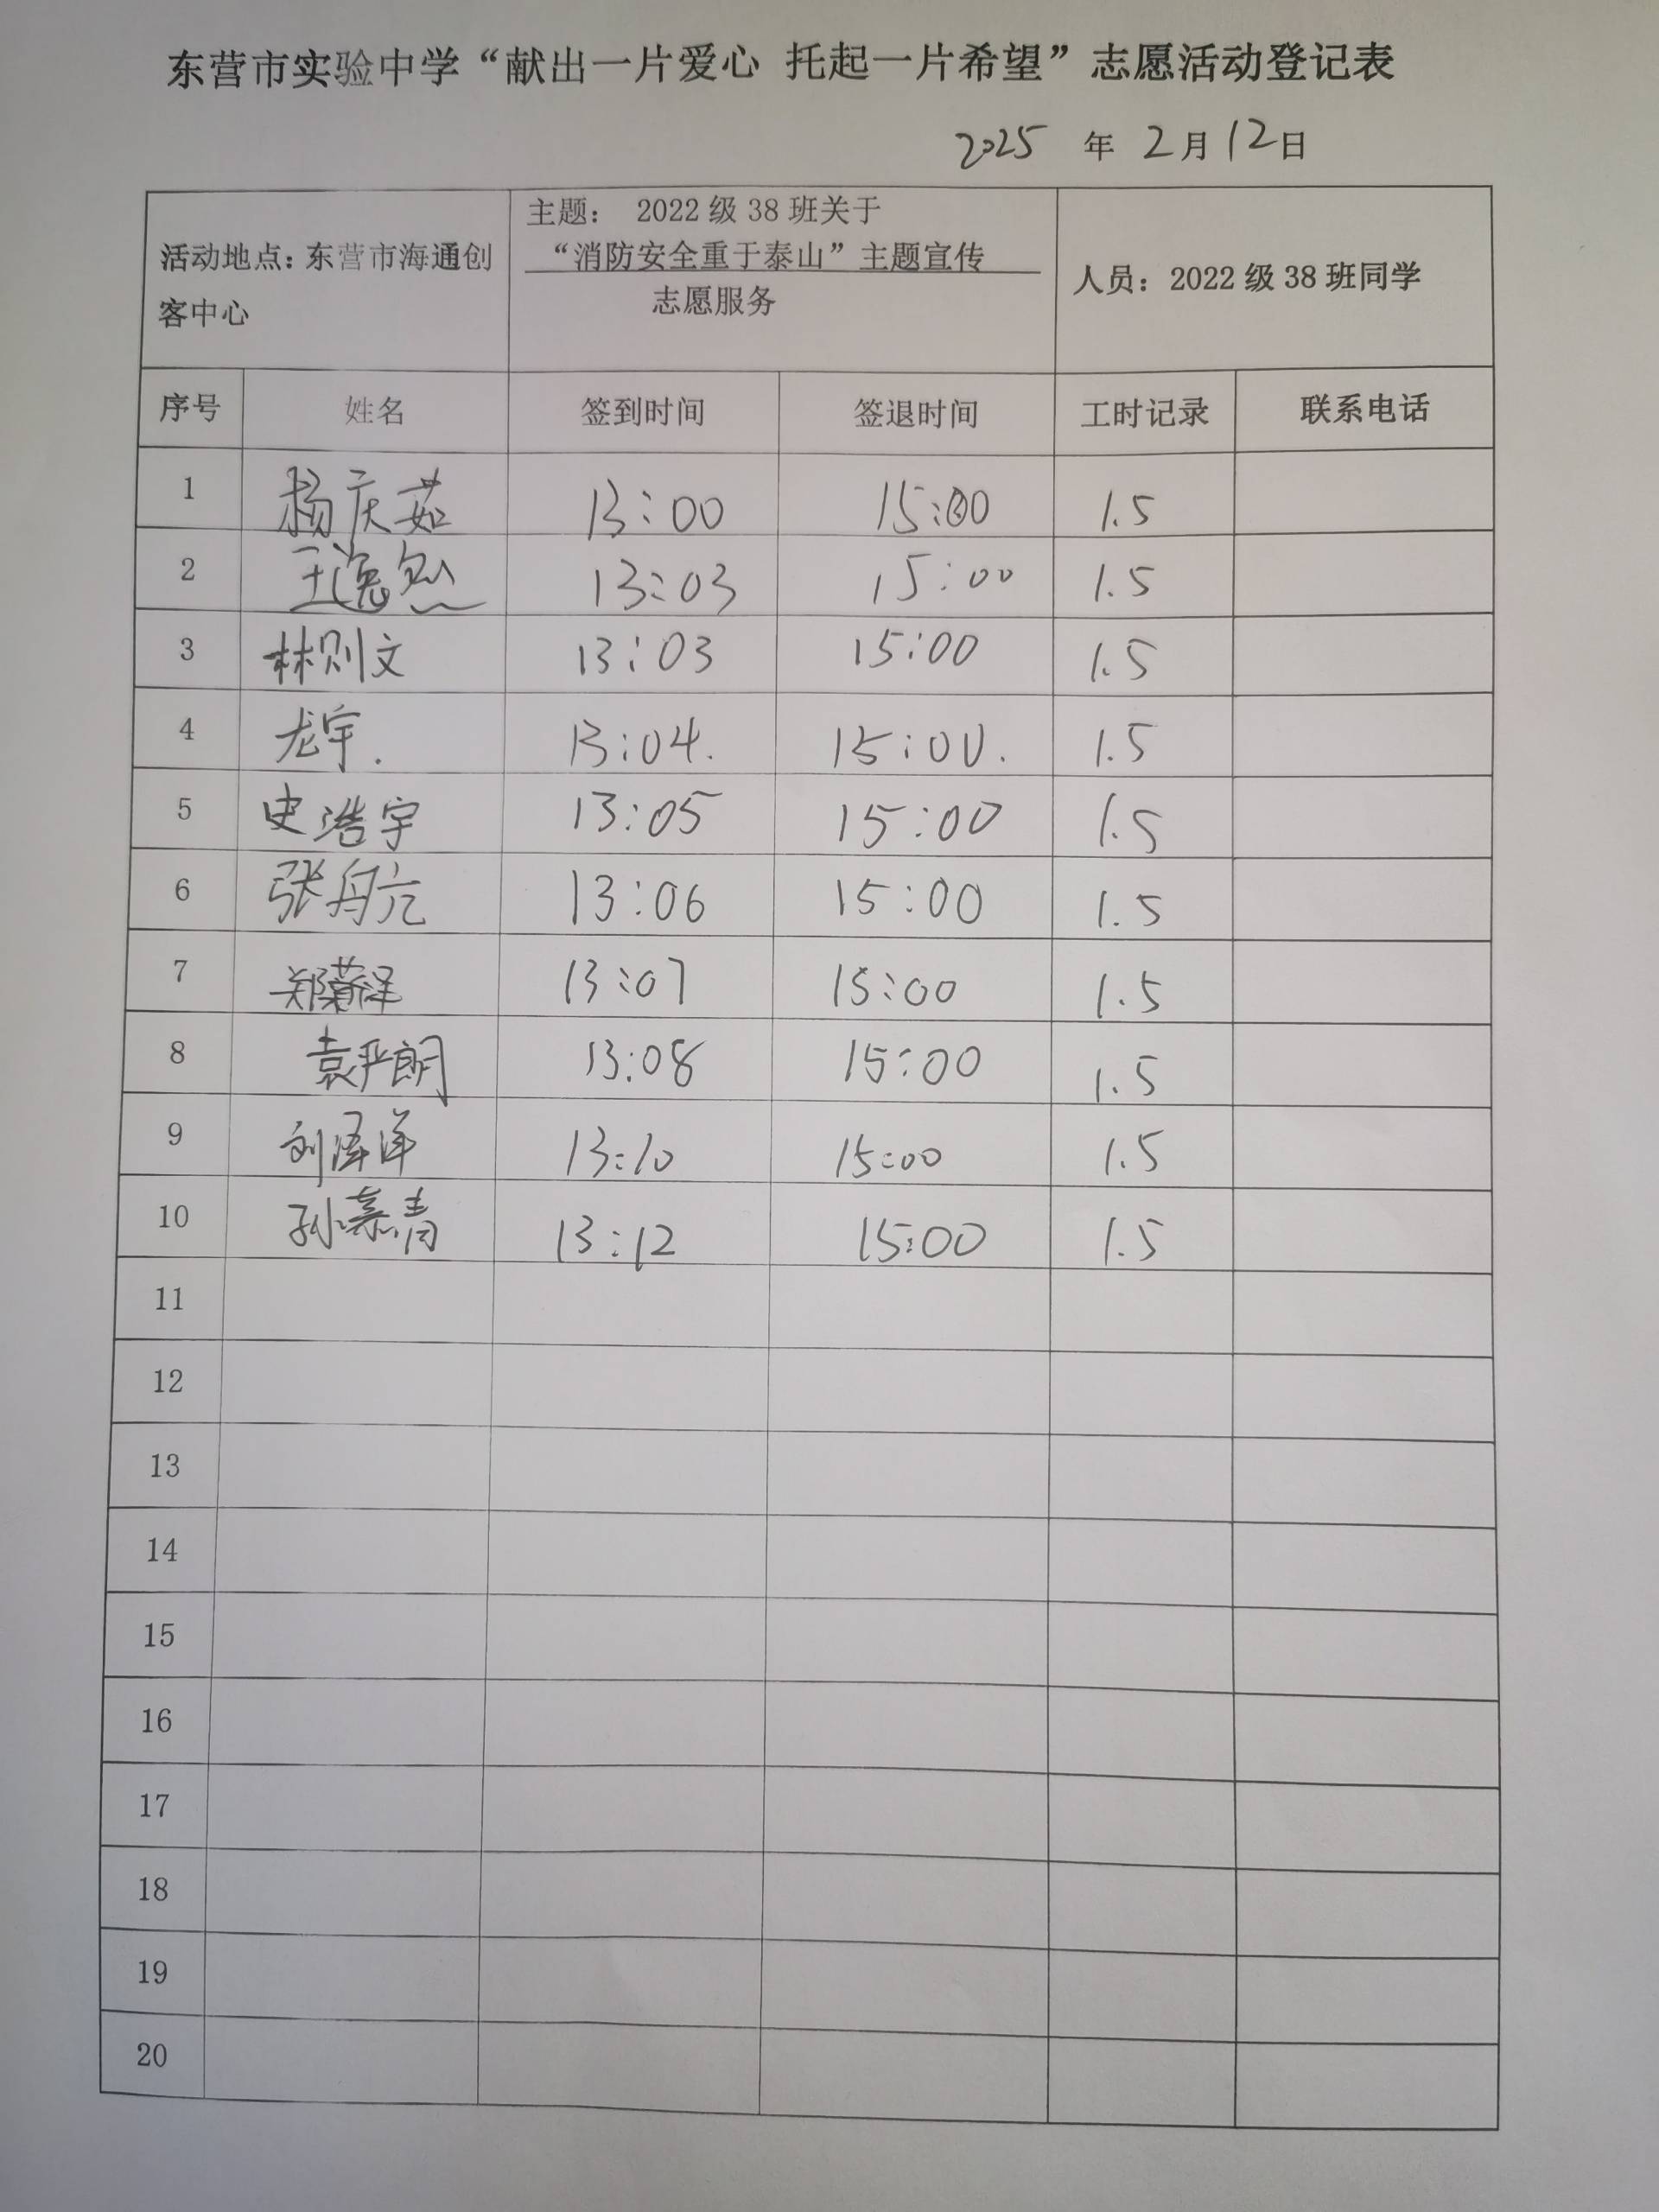 东营市实验中学“献出一片爱心 托起一片希望”志愿活动登记表
2025 年 2月12日
活动地点：东营市海通创
客中心
主题： 2022级38班关于
“消防安全重于泰山”主题宣传
志愿服务
人员：2022级38班同学
序号 姓名 签到时间 签退时间 工时记录 联系电话
1 杨庆茹 13:00 15:00 1.5
2 王逸然 13:03 15:00 1.5
3 林则文 13:03 15:00 1.5
4 龙宇. 13:04. 15:00. 1.5
5 史浩宇 13:05 15:00 1.5
6 张舟亢 13:06 15:00 1.5
7 郑 13:07 15:00 1.5
8 袁严朗 13:08 15:00 1.5
9 刘泽洋 13:10 15:00 1.5
10 孙慕青 13:12 15:00 1.5
11
12
13
14
15
16
17
18
19
20